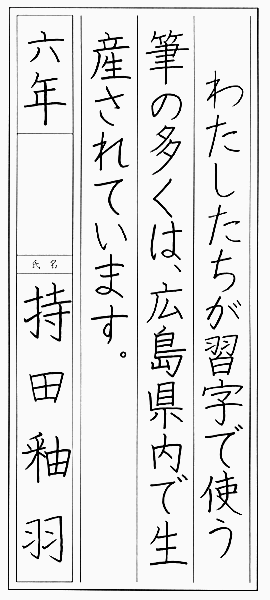 わたしたちが習字で使う
筆の多くは、広島県内で生
産されています。
六年
氏名
持田釉羽